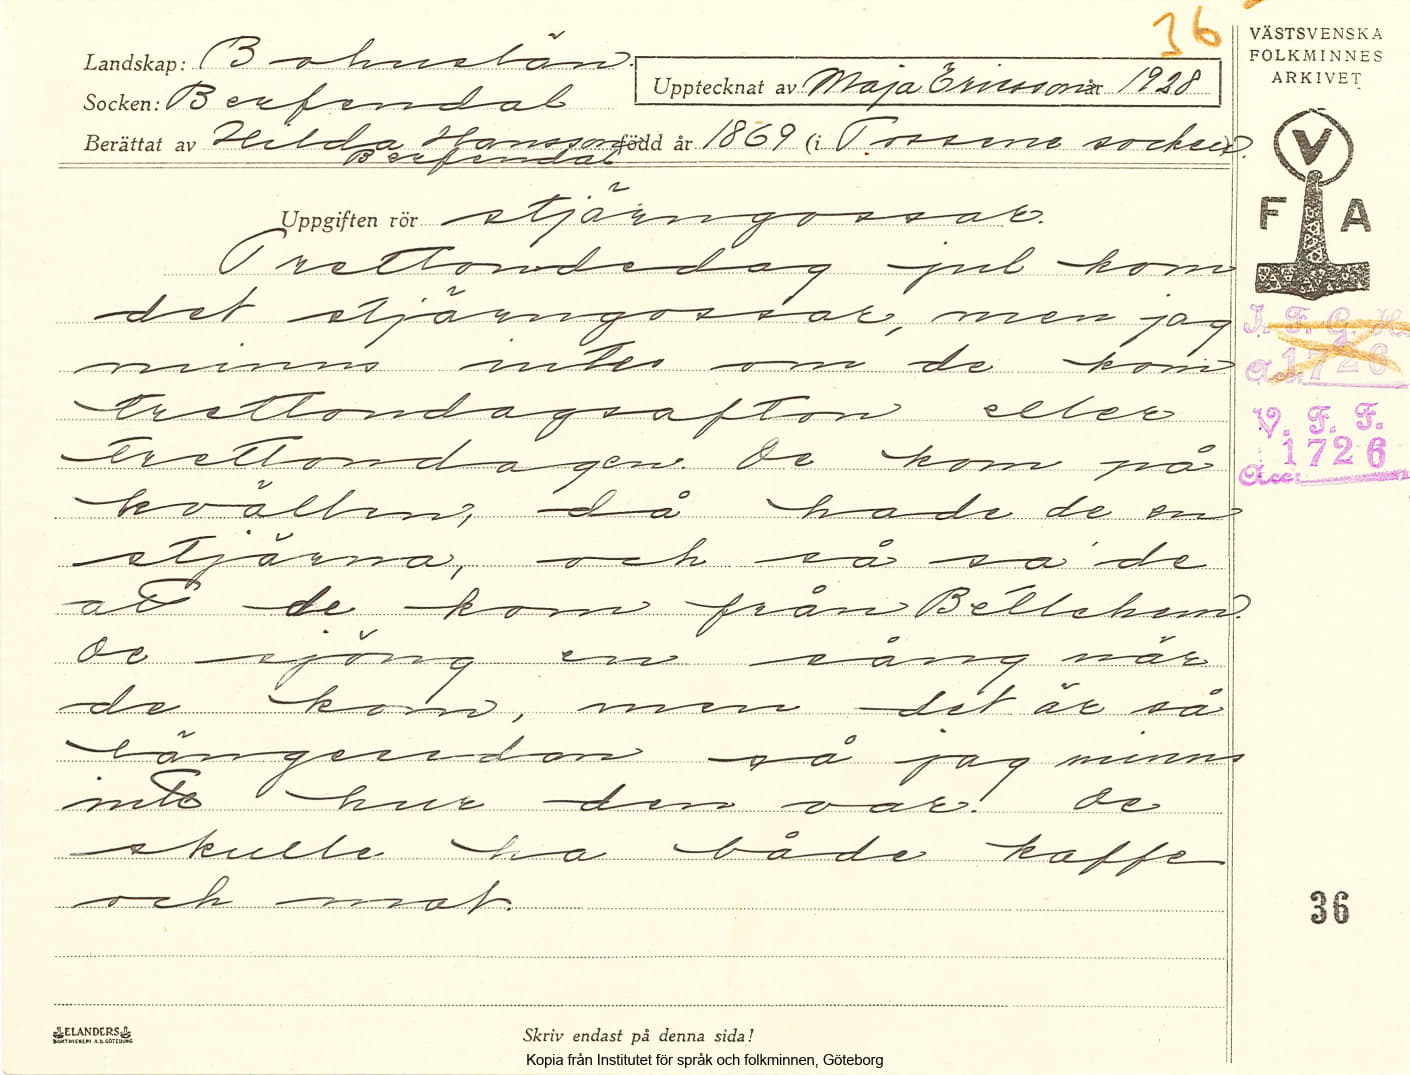 36
VÄSTSVENSKA
FOLKMINNES
ARKIVET
Landskap: Bohuslän.
Upptecknat av Maja Ericsson år 1928
Socken: Berfendal
Berättat av Hilda Hansson född år 1869 (i Tossene socken).
Berfendal
V
F A
Uppgiften rör stjärngossar.
Trettondedag jul kom
det stjärngossar, men jag
minns inte om de kom
trettondagsafton eller
trettondagen. De kom på
kvällen, då hade de en
stjärna, och så sa de
att de kom från Betlehem.
De sjöng en sång när
de kom, men det är så
längesedan så jag minns
inte hur den var. De
skulle ha både kaffe
och mat.
I. F. G. H.
Acc. 1726
V. F. F.
1726
Acc:
36
ELANDERS
BOKTRYCKERI A.B. GÖTEBORG
Skriv endast på denna sida!
Kopia från Institutet för språk och folkminnen, Göteborg